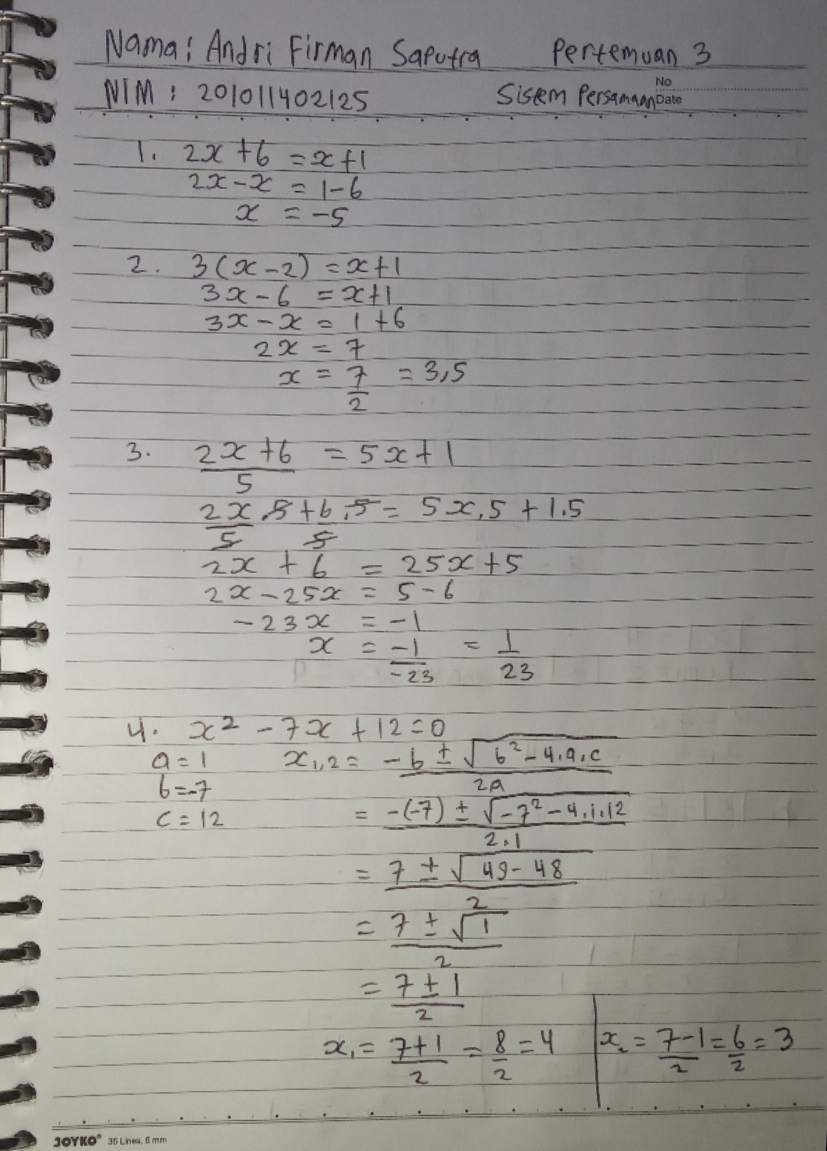 Nama: Andri Firman Saputra Pertemuan 3
NIM : 201011402125 Sistem Persamaan No Date
1. 2x + 6 = x + 1
2x - x = 1 - 6
x = -5
2. 3(x - 2) = x + 1
3x - 6 = x + 1
3x - x = 1 + 6
2x = 7
x = 7/2 = 3,5
3. (2x + 6)/5 = 5x + 1
2x/5 . 5 + 6/5 . 5 = 5x . 5 + 1 . 5
2x + 6 = 25x + 5
2x - 25x = 5 - 6
-23x = -1
x = -1/-23 = 1/23
4. x² - 7x + 12 = 0
a = 1 x₁,₂ = (-b ± √(b² - 4.a.c))/2a
b = -7
c = 12 = (-(-7) ± √(-7² - 4.1.12))/2.1
= (7 ± √(49 - 48))/2
= (7 ± √1)/2
= (7 ± 1)/2
x₁ = (7 + 1)/2 = 8/2 = 4 x₂ = (7 - 1)/2 = 6/2 = 3
JOYKO® 36 Lines, 6 mm